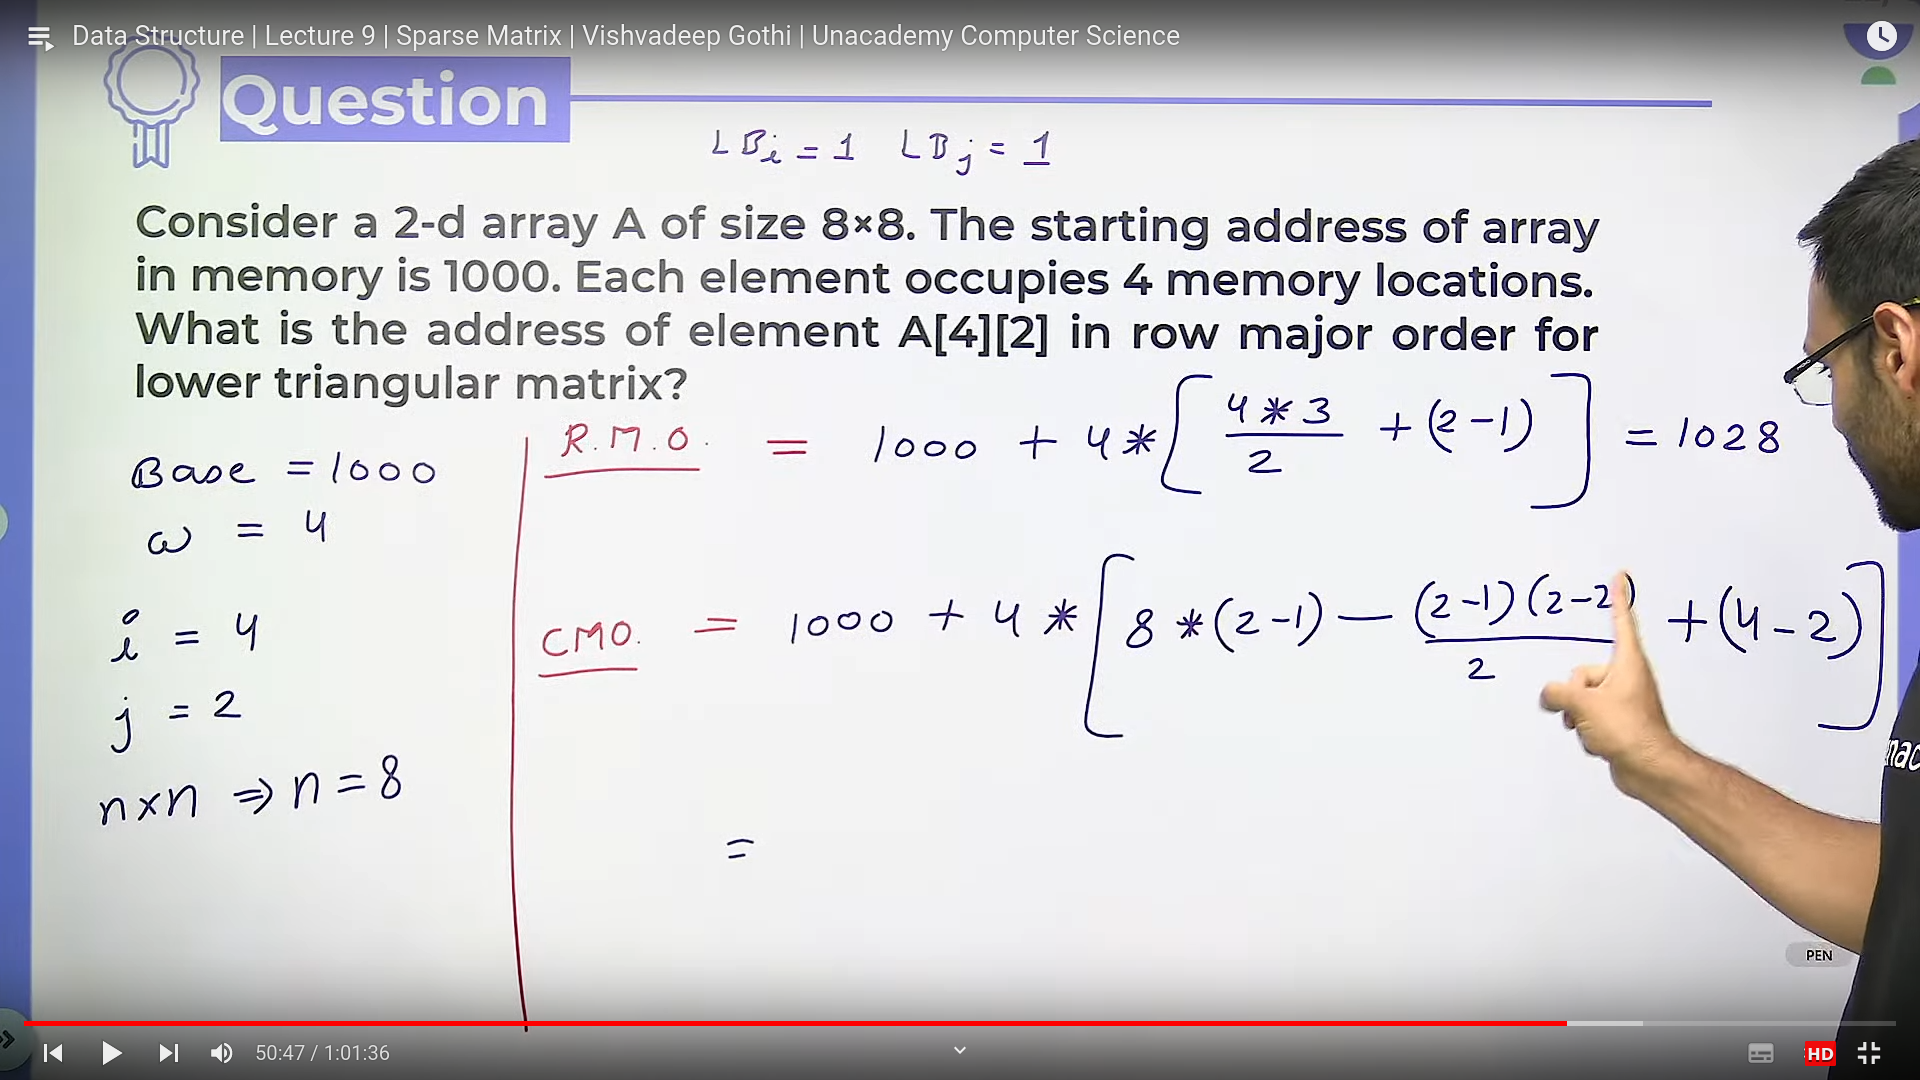 Data Structure | Lecture 9 | Sparse Matrix | Vishvadeep Gothi | Unacademy Computer Science
Question
LBi = 1 LBj = 1
Consider a 2-d array A of size 8×8. The starting address of array
in memory is 1000. Each element occupies 4 memory locations.
What is the address of element A[4][2] in row major order for
lower triangular matrix?
Base = 1000
ω = 4
i = 4
j = 2
n×n ⇒ n = 8
R.M.O. = 1000 + 4*[ (4*3)/2 + (2-1) ] = 1028
CMO. = 1000 + 4*[ 8*(2-1) - (2-1)(2-2)/2 + (4-2) ]
=
PEN
50:47 / 1:01:36
HD